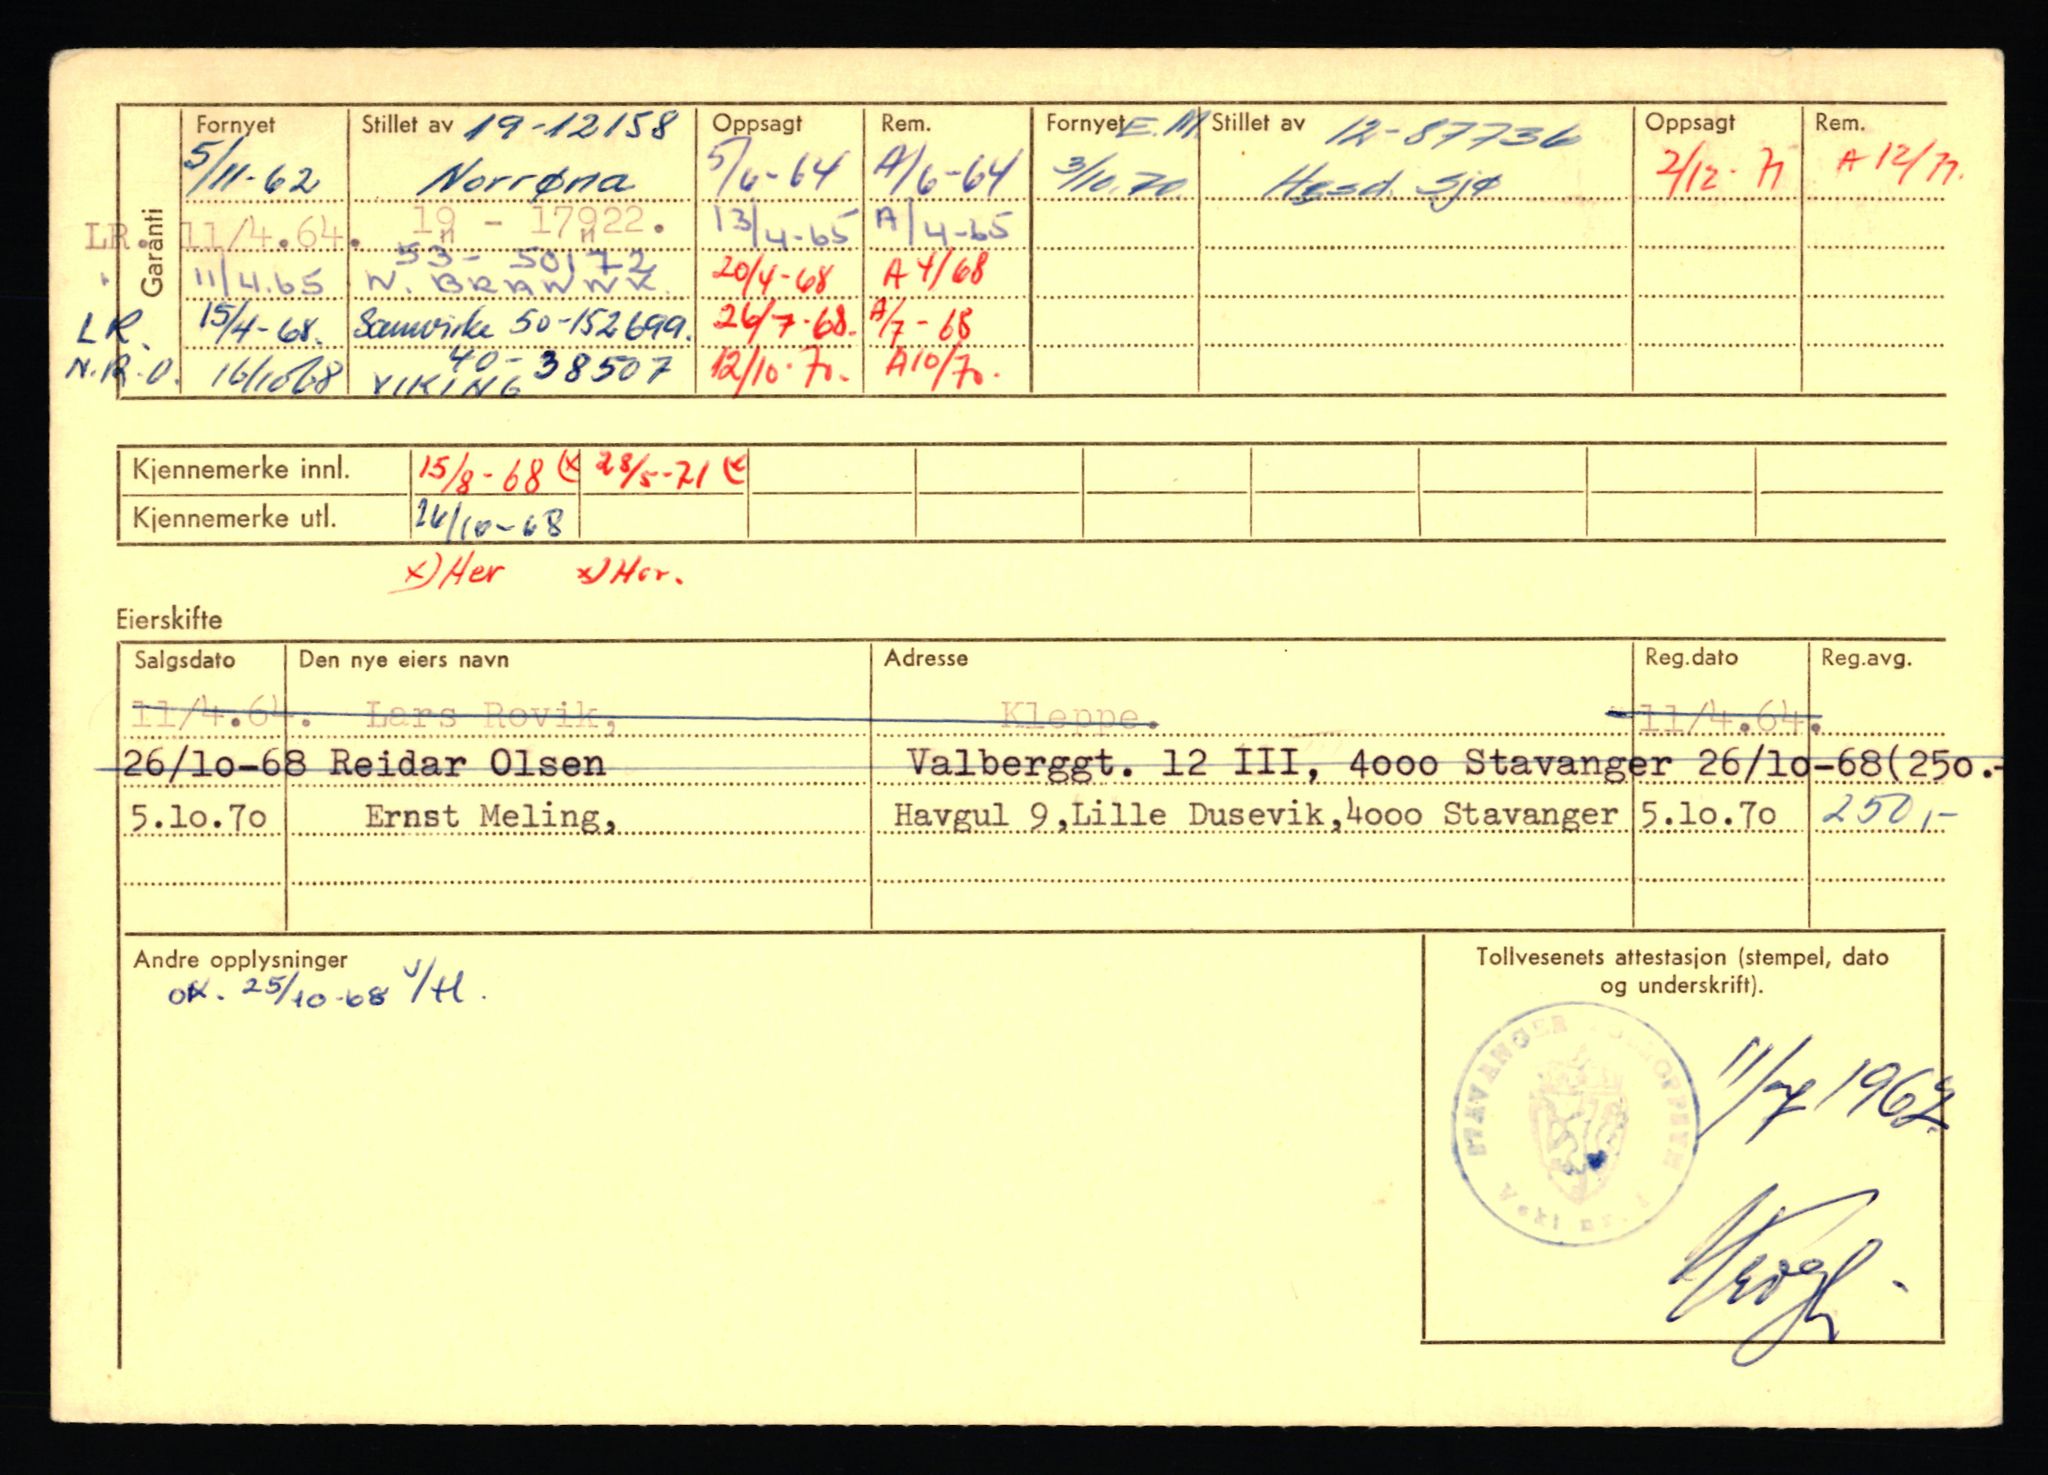 Garanti
Fornyet Stillet av 19-12158 Oppsagt Rem. Fornyet E.M. Stillet av 12-87736 Oppsagt Rem.
5/11-62 Norrøna 5/6-64 A/6-64 3/10.70. Hgsd. Sjø 2/12-71 A 12/71.
LR. 11/4.64. 19 - 17922. 13/4-65 A/4-65
" 11/4.65 53- 50172 N. BRANNK. 20/4-68 A 4/68
LR. 15/4-68. Samvirke 50-152699. 26/7-68. A/7-68
N.R.O. 16/10 68 40-38507 VIKING 12/10-70. A10/70.
Kjennemerke innl. 15/8-68 (x 28/5-71 (x
Kjennemerke utl. 26/10-68
x) Her x) Her.
Eierskifte
Salgsdato Den nye eiers navn Adresse Reg.dato Reg.avg.
11/4.64. Lars Rovik, Kleppe. 11/4.64.
26/1o-68 Reidar Olsen Valberggt. 12 III, 4ooo Stavanger 26/1o-68(25o.-
5.1o.7o Ernst Meling, Havgul 9,Lille Dusevik,4ooo Stavanger 5.1o.7o 250,-
Andre opplysninger
OK. 25/10-68 V/H.
Tollvesenets attestasjon (stempel, dato
og underskrift).
STAVANGER